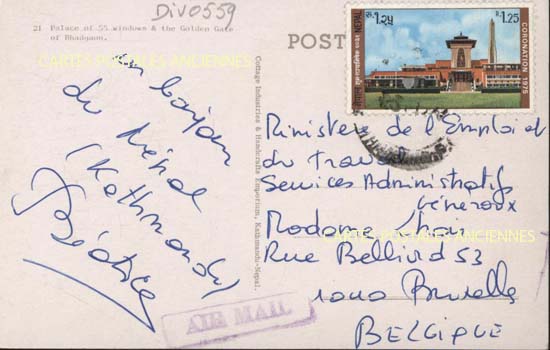 DIV0559
21 Palace of 55 windows & the Golden Gate
of Bhadgaon.
CARTES POSTALES ANCIENNES
POST
Un bonjour
du Népal
(Kathmandu)
Béatrice
Cottage Industries & Handicrafts Emporium, Kathmandu-Nepal.
रु. १.२५
R 1.25
NEPAL
CORONATION 1975
Ministère de l'Emploi et
du travail
Services Administratifs
Généraux
Madame
Rue Belliard 53
1040 Bruxelles
BELGIQUE
CARTES POSTALES ANCIENNES
AIR MAIL